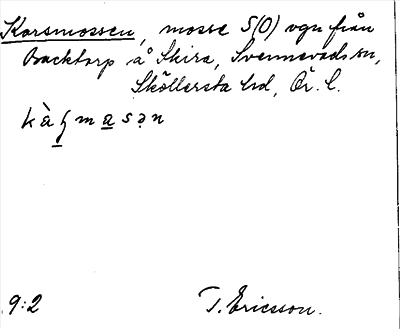 Korsmossen, mosse S(O) vgn från
Backtorp å Skira, Svennevads sn,
Sköllersta hd, Ör. l.
kàʂmasən
9:2 T. Ericsson.